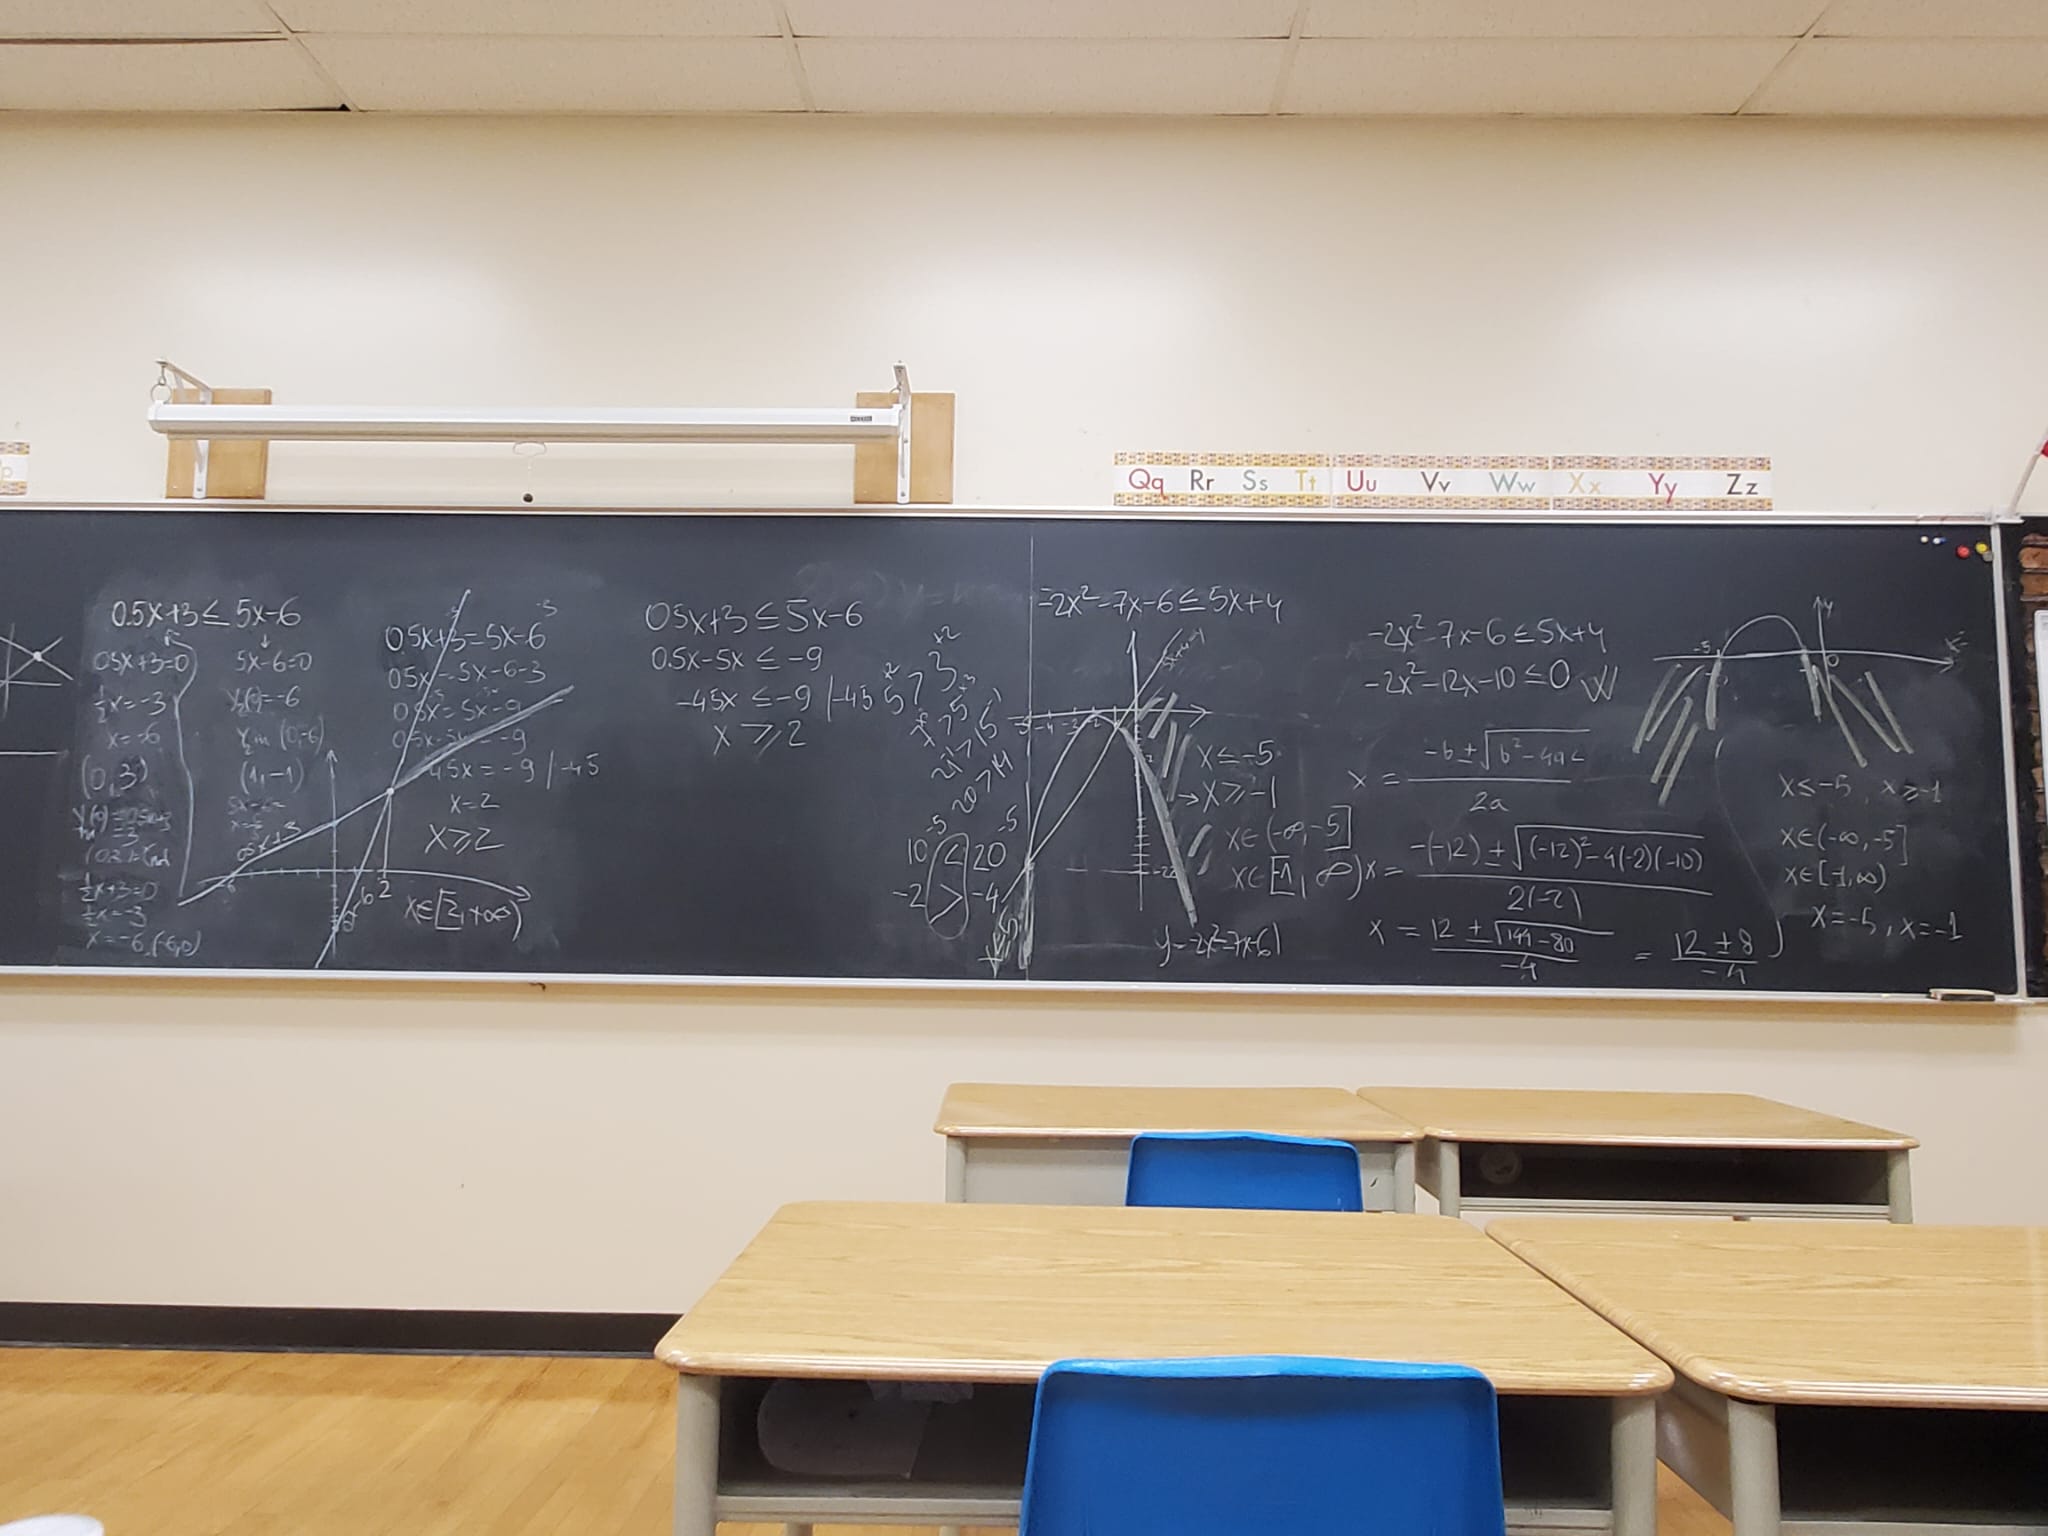 Qq Rr Ss Tt Uu Vv Ww Xx Yy Zz
0.5x+3 ≤ 5x-6
0.5x+3=0
½x=-3
x=-6
(0,3)
½x+3=0
½x=-3
x=-6 (-6,0)
5x-6=0
(0,-6)
(1,-1)
0.5x+3
-6
2
0.5x+3=5x-6
0.5x=5x-6-3
0.5x=5x-9
-4.5x=-9 /-4.5
x=2
x≥2
x∈[2,+∞)
0.5x+3 ≤ 5x-6
0.5x-5x ≤ -9
-4.5x ≤ -9 /-4.5
x ≥ 2
5 > 3
21 > 15
20 > 14
-5 -5
10 < 20
-2 > -4
-2x²-7x-6 ≤ 5x+4
x≤-5
→ x≥-1
x∈(-∞,-5]
x∈[-1,∞)
y=-2x²-7x-6
-2x²-7x-6 ≤ 5x+4
-2x²-12x-10 ≤ 0
x = -b±√b²-4ac
2a
x = -(-12)±√(-12)²-4(-2)(-10)
2(-2)
x = 12±√144-80 = 12±8
-4 -4
y
-5 0
x≤-5, x≥-1
x∈(-∞,-5]
x∈[-1,∞)
x=-5, x=-1